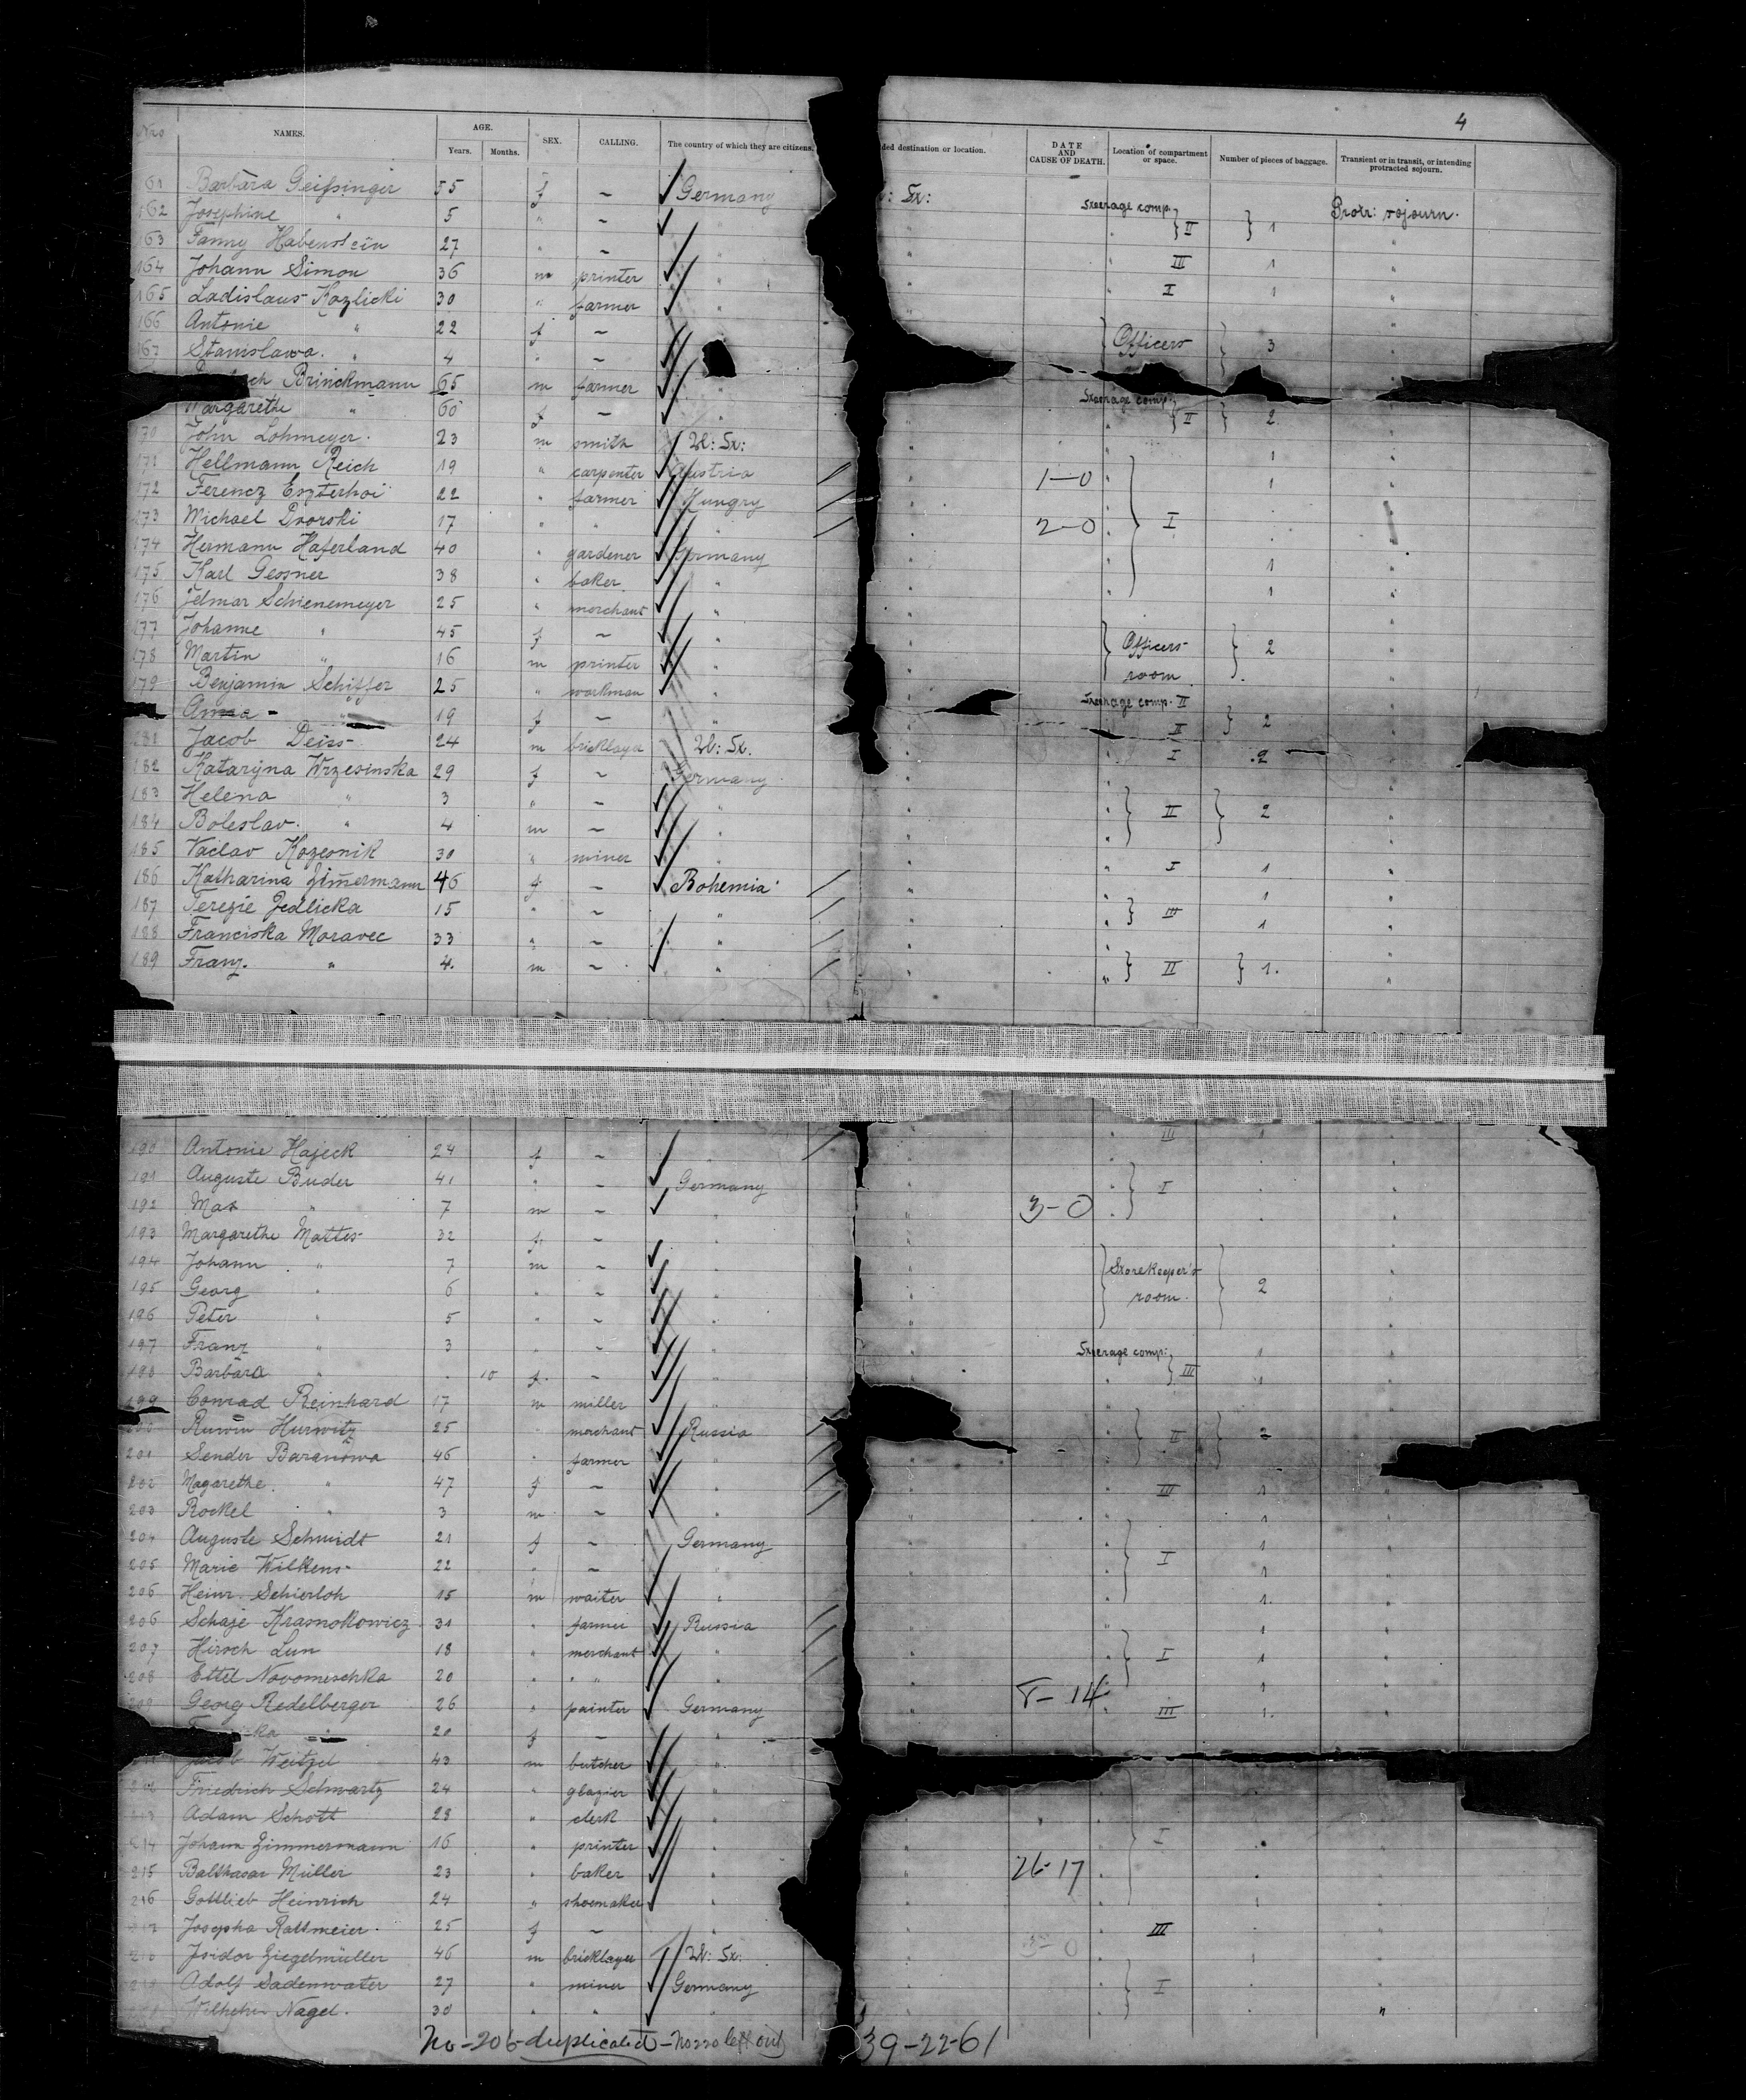 4
Nro NAMES. AGE. Years. Months. SEX. CALLING. The country of which they are citizens. ded destination or location. DATE AND CAUSE OF DEATH. Location of compartment or space. Number of pieces of baggage. Transient or in transit, or intending protracted sojourn.
61 Barbara Geifsinger 55 f — Germany : St: Steerage comp. Protr: sojourn.
162 Josephine " 5 " — " } II } 1 "
163 Fanny Habenstein 27 " — " " III 1 "
164 Johann Simon 36 m printer " " I 1 "
165 Ladislaus Kozlicki 30 " farmer " "
166 Antonie " 22 f — Officers 3
167 Stanislawa. " 4 " —
Brinckmann 65 m farmer " Steerage comp.
Margarethe " 60 f — " II } 2
170 John Lohmeyer. 23 m smith U: St: 1
171 Hellmann Reich 19 " carpenter Austria 1-0 1
172 Ferencz Eszterhoi 22 " farmer Hungry
173 Michael Dvorski 17 " " " 2-0 I
174 Hermann Haferland 40 " gardener Germany 1
175 Karl Gessner 38 " baker " 1
176 Jelmar Schienemeyer 25 " merchant "
177 Johanne " 45 f — " Officers 2
178 Martin " 16 m printer " room
179 Benjamin Schiffer 25 " workman " Steerage comp. II
Anna " 19 f — " II } 2
181 Jacob Deiss 24 m bricklayer U: St. I 2
182 Kataryna Wrzesinska 29 f — Germany
183 Helena " 3 " — " II 2
184 Boleslav. " 4 m — "
185 Vaclav Kozesnik 30 " miner " I 1
186 Katharina Zimermann 46 f — Bohemia 1
187 Terezie Jedlicka 15 " — " III 1
188 Franciska Moravec 33 " — "
189 Franz. " 4. m — " II 1.
190 Antonie Hajeck 24 f — " III 1
191 Auguste Buder 41 " — Germany I
192 Max " 7 m — " 3-0
193 Margarethe Mattes 32 f — "
194 Johann " 7 m — " Storekeeper's
195 Georg " 6 " — " room. 2
196 Peter " 5 " — "
197 Franz " 3 " — " Steerage comp: 1
198 Barbara " 10 f. — " III 1
199 Conrad Reinhard 17 m miller "
200 Ruwin Hurwitz 25 " merchant Russia II 2
201 Sender Baranowa 46 " farmer "
202 Magarethe. " 47 f — " III 1
203 Rockel " 3 m — " 1
204 Auguste Schmidt 21 f — Germany 1
205 Marie Wilkens 22 " — " I 1
206 Heinr. Schierloh 15 m waiter " 1.
206 Schaje Krasnokowicz 31 " farmer Russia 1
207 Hirsch Lun 18 " merchant " I 1
208 Ettel Novomeschka 20 " " " 8-14 1
209 Georg Redelberger 26 " painter Germany III 1.
" 20 f — "
Jacob Weitzel 43 m butcher "
212 Friedrich Schwartz 24 " glazier "
213 Adam Schott 28 " clerk "
214 Johann Zimmermann 16 " printer " I
215 Balthasar Müller 23 " baker " 26-17
216 Gottlieb Heinrich 24 " shoemaker " 1
217 Josepha Rattmeier. 25 f — " III
218 Isidor Ziegelmüller 46 m bricklayer U: St: 3-0
219 Adolf Sadenwater 27 " miner Germany I
Wilhelm Nagel. 30 " " "
No-206-duplicated-No 220 left out 39-22-61